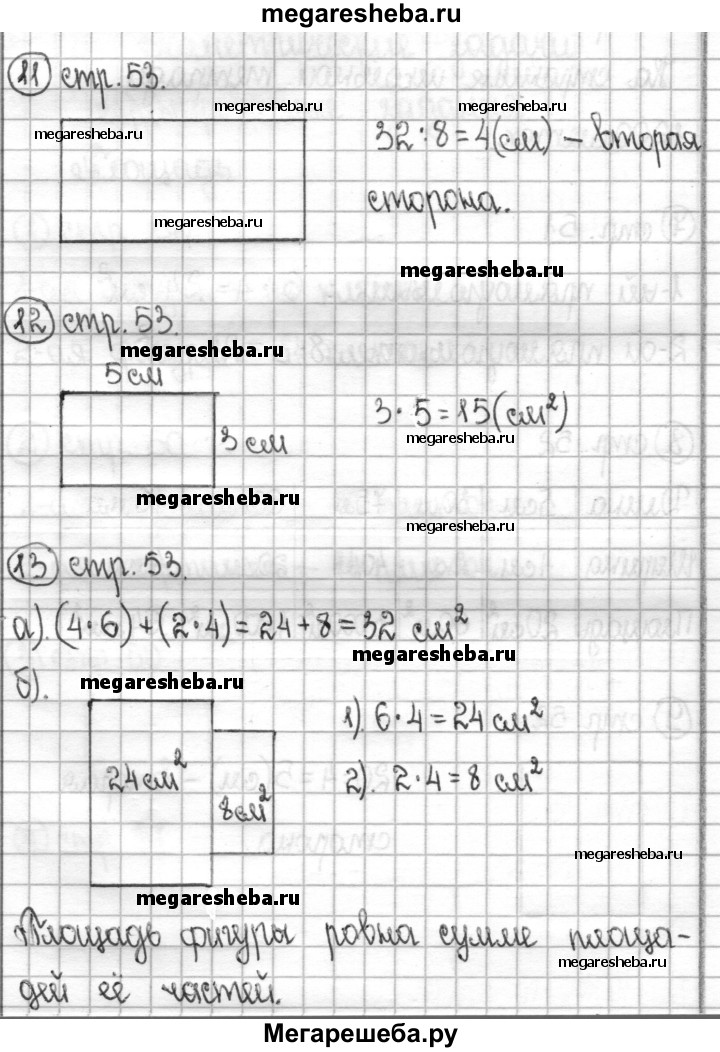 megaresheba.ru
11 стр. 53.
megaresheba.ru
megaresheba.ru
megaresheba.ru
32 : 8 = 4(см) – вторая
сторона.
megaresheba.ru
megaresheba.ru
12 стр. 53.
megaresheba.ru
5 см
3 см
3 · 5 = 15(см²)
megaresheba.ru
megaresheba.ru
megaresheba.ru
13 стр. 53.
а). (4·6)+(2·4)= 24+8=32 см²
megaresheba.ru
б).
megaresheba.ru
1). 6·4=24 см²
24 см²
2). 2·4=8 см²
8 см²
megaresheba.ru
megaresheba.ru
Площадь фигуры равна сумме площа-
дей её частей.
megaresheba.ru
Мегарешеба.ру